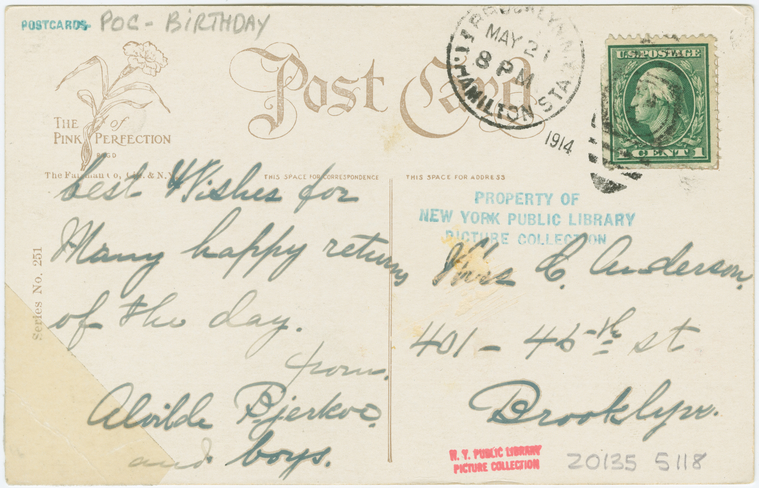 POSTCARDS POC - BIRTHDAY
Post Card
BROOKLYN, N.Y.
MAY 21
8 PM
HAMILTON STA.
1914
U.S. POSTAGE
1 CENT 1
THE of
PINK PERFECTION
THIS SPACE FOR CORRESPONDENCE
THIS SPACE FOR ADDRESS
Series No. 251
best Wishes for
Many happy returns
of the day.
from.
Alvilde
and boys.
PROPERTY OF
NEW YORK PUBLIC LIBRARY
PICTURE COLLECTION
Mrs C. Anderson,
401 - 46th st
Brooklyn.
N. Y. PUBLIC LIBRARY
PICTURE COLLECTION
20135 5118